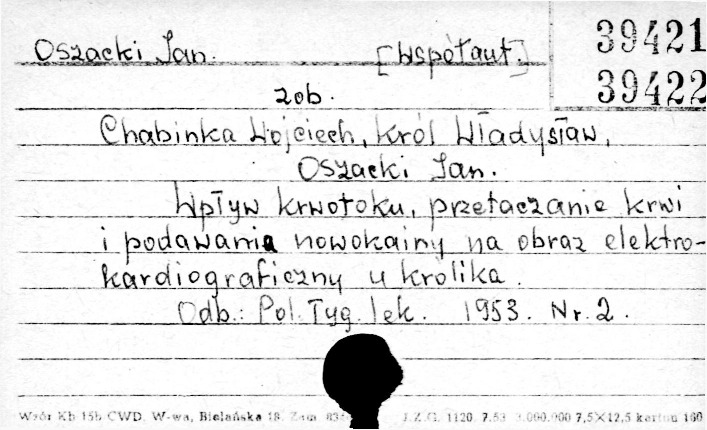 Oszacki Jan. [Współaut.]
39421
39422
zob.
Chabinka Wojciech, Król Władysław,
Oszacki Jan.
Wpływ krwotoku, przetaczanie krwi
i podawania nowokainy na obraz elektro-
kardiograficzny u królika.
Odb.: Pol. Tyg. lek. 1953. Nr. 2.
Wzór Kb 15b CWD. W-wa, Bielańska 18. Zam. J.Z.G. 1120 7.53 3.000.000 7,5×12,5 karton 160